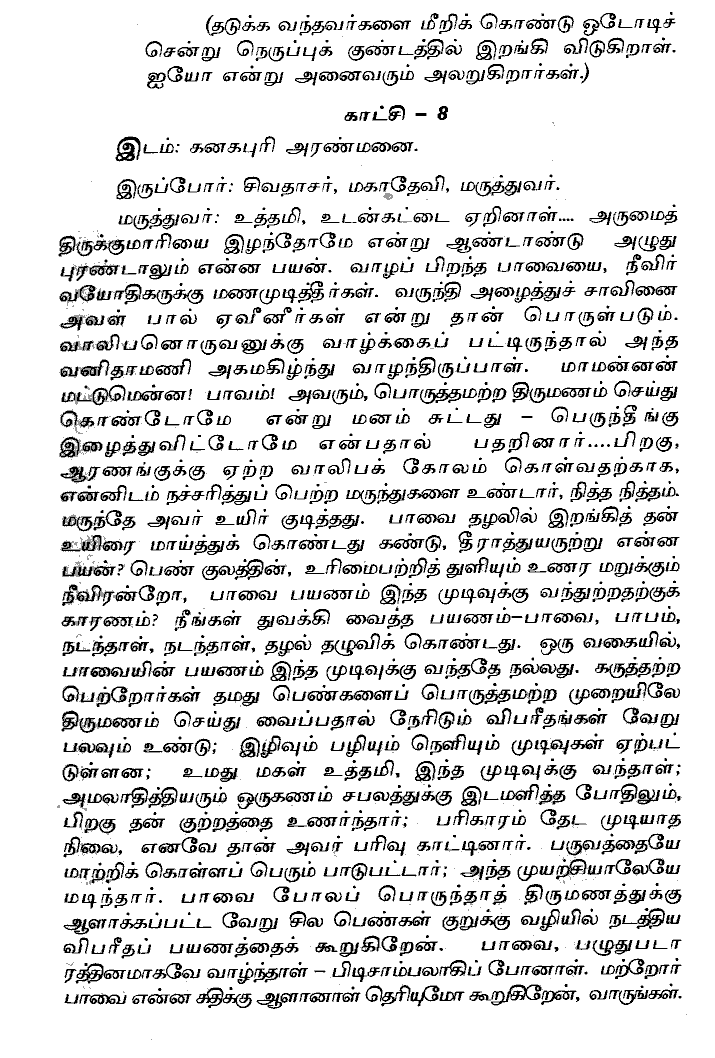 (தடுக்க வந்தவர்களை மீறிக் கொண்டு ஒடோடிச்
சென்று நெருப்புக் குண்டத்தில் இறங்கி விடுகிறாள்.
ஐயோ என்று அனைவரும் அலறுகிறார்கள்.)
காட்சி – 8
இடம்: கனகபுரி அரண்மனை.
இருப்போர்: சிவதாசர், மகாதேவி, மருத்துவர்.
மருத்துவர்: உத்தமி, உடன்கட்டை ஏறினாள்.... அருமைத்
திருக்குமாரியை இழந்தோமே என்று ஆண்டாண்டு அழுது
புரண்டாலும் என்ன பயன். வாழப் பிறந்த பாவையை, நீவிர்
வயோதிகருக்கு மணமுடித்தீர்கள். வருந்தி அழைத்துச் சாவினை
அவள் பால் ஏவினீர்கள் என்று தான் பொருள்படும்.
வாலிபனொருவனுக்கு வாழ்க்கைப் பட்டிருந்தால் அந்த
வனிதாமணி அகமகிழ்ந்து வாழந்திருப்பாள். மாமன்னன்
மட்டுமென்ன! பாவம்! அவரும், பொருத்தமற்ற திருமணம் செய்து
கொண்டோமே என்று மனம் சுட்டது – பெருந்தீங்கு
இழைத்துவிட்டோமே என்பதால் பதறினார்....பிறகு,
ஆரணங்குக்கு ஏற்ற வாலிபக் கோலம் கொள்வதற்காக,
என்னிடம் நச்சரித்துப் பெற்ற மருந்துகளை உண்டார், நித்த நித்தம்.
மருந்தே அவர் உயிர் குடித்தது. பாவை தழலில் இறங்கித் தன்
உயிரை மாய்த்துக் கொண்டது கண்டு, தீராத்துயருற்று என்ன
பயன்? பெண் குலத்தின், உரிமைபற்றித் துளியும் உணர மறுக்கும்
நீவிரன்றோ, பாவை பயணம் இந்த முடிவுக்கு வந்துற்றதற்குக்
காரணம்? நீங்கள் துவக்கி வைத்த பயணம்–பாவை, பாபம்,
நடந்தாள், நடந்தாள், தழல் தழுவிக் கொண்டது. ஒரு வகையில்,
பாவையின் பயணம் இந்த முடிவுக்கு வந்ததே நல்லது. கருத்தற்ற
பெற்றோர்கள் தமது பெண்களைப் பொருத்தமற்ற முறையிலே
திருமணம் செய்து வைப்பதால் நேரிடும் விபரீதங்கள் வேறு
பலவும் உண்டு; இழிவும் பழியும் நெளியும் முடிவுகள் ஏற்பட்
டுள்ளன; உமது மகள் உத்தமி, இந்த முடிவுக்கு வந்தாள்;
அமலாதித்தியரும் ஒருகணம் சபலத்துக்கு இடமளித்த போதிலும்,
பிறகு தன் குற்றத்தை உணர்ந்தார்; பரிகாரம் தேட முடியாத
நிலை, எனவே தான் அவர் பரிவு காட்டினார். பருவத்தையே
மாற்றிக் கொள்ளப் பெரும் பாடுபட்டார்; அந்த முயற்சியாலேயே
மடிந்தார். பாவை போலப் பொருந்தாத் திருமணத்துக்கு
ஆளாக்கப்பட்ட வேறு சில பெண்கள் குறுக்கு வழியில் நடத்திய
விபரீதப் பயணத்தைக் கூறுகிறேன். பாவை, பழுதுபடா
ரத்தினமாகவே வாழ்ந்தாள் – பிடிசாம்பலாகிப் போனாள். மற்றோர்
பாவை என்ன கதிக்கு ஆளானாள் தெரியுமோ கூறுகிறேன், வாருங்கள்.